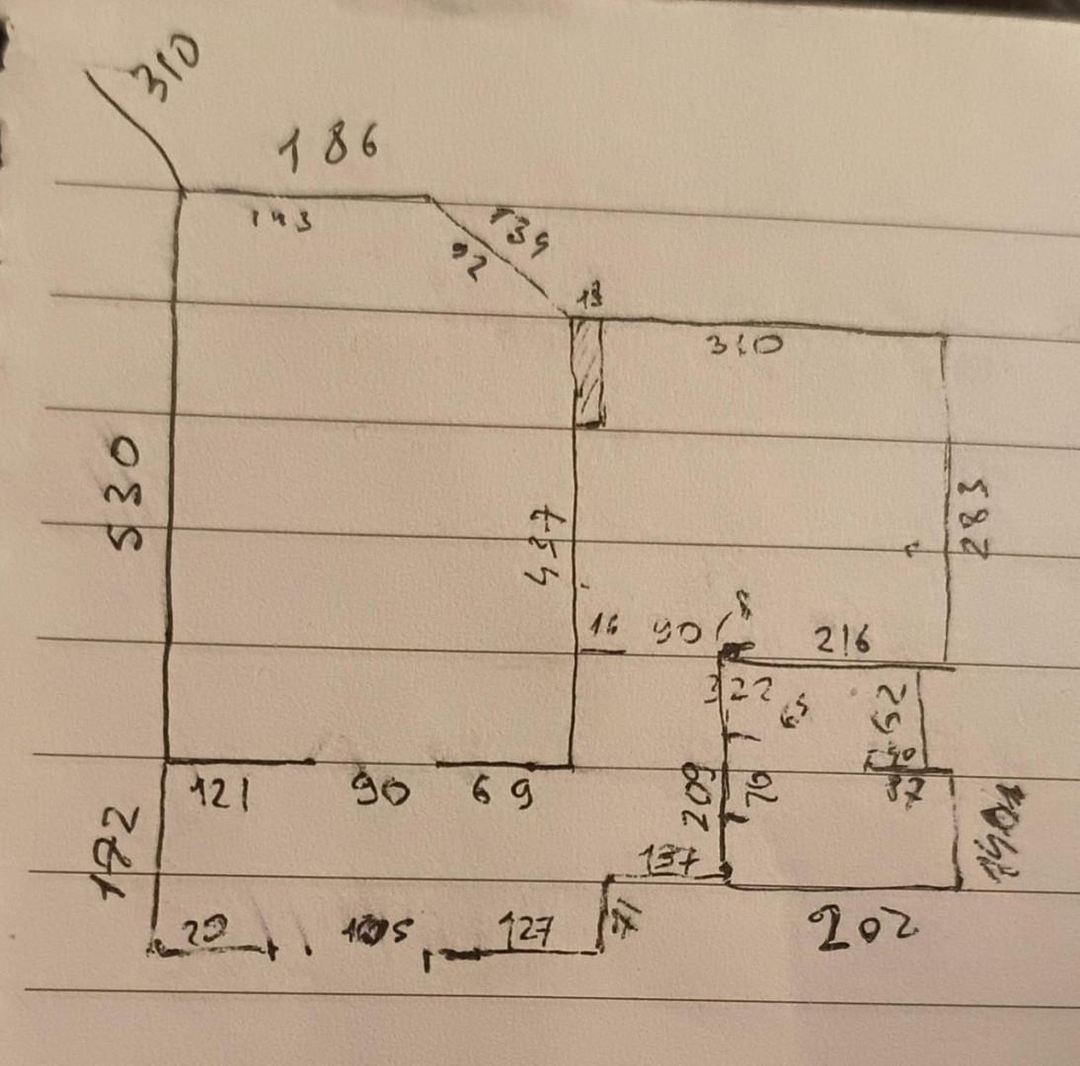 310
186
143
139
92
18
310
530
437
283
16 90 8 216
322 65 62
121 90 69
209 70
40
37
172
137
20 105 127
71
202